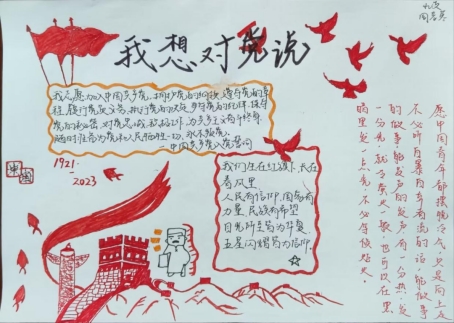 我想对党说
我志愿加入中国共产党,拥护党的纲领,遵守党的章
程,履行党员义务,执行党的决定,严守党的纪律,保守
党的秘密,对党忠诚,积极工作,为共产主义奋斗终身,
随时准备为党和人民牺牲一切,永不叛党。
中国共产党入党誓词
1921
2023
我们生在红旗下,长在
春风里
人民有信仰,国家有
力量,民族有希望
目光所至皆为华夏
五星闪耀皆为信仰.
愿中国青年都摆脱冷气,只是向上走
不必听自暴自弃者流的话,能做事
的做事,能发声的发声,有一分热,发
一分光,就令萤火一般,也可以在黑
暗里发一点光,不必等候炬火。